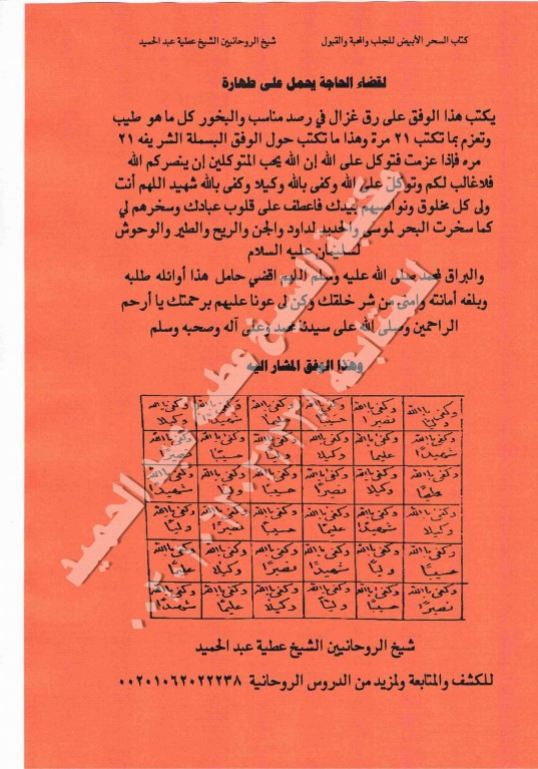 كتاب السحر الأبيض للجلب والمحبة والقبول شيخ الروحانيين الشيخ عطية عبد الحميد
لقضاء الحاجة يحمل على طهارة
يكتب هذا الوفق على رق غزال في رصد مناسب والبخور كل ما هو طيب
وتعزم بما تكتب ٢١ مرة وهذا ما تكتب حول الوفق البسملة الشريفه ٢١
مره فإذا عزمت فتوكل على الله إن الله يحب المتوكلين إن ينصركم الله
فلاغالب لكم وتوكل على الله وكفى بالله وكيلا وكفى بالله شهيد اللهم أنت
ولى كل مخلوق ونواصيهم بيدك فاعطف على قلوب عبادك وسخرهم لي
كما سخرت البحر لموسى والحديد لداود والجن والريح والطير والوحوش
لسليمان عليه السلام
والبراق لمحمد صلى الله عليه وسلم اللهم اقضي حامل هذا أوائله طلبه
وبلغه أمانته وامنى من شر خلقك وكن لى عونا عليهم برحمتك يا أرحم
الراحمين وصلى الله على سيدنا محمد وعلى آله وصحبه وسلم
وهذا الوفق المشار اليه
وكفى باالله وليا وكفى باالله نصيرا وكفى باالله حسيبا وكفى باالله وكفى باالله شهيدا وكفى باالله وكيلا
وكفى باالله شهيدا وكفى باالله عليما وكفى باالله وكيلا وكفى باالله وليا وكفى باالله حسيبا وكفى باالله نصيرا
وكفى باالله عليما وكفى باالله وكيلا وكفى باالله نصيرا وكفى باالله حسيبا وكفى باالله وليا وكفى باالله شهيدا
وكفى باالله وكيلا وكفى باالله شهيدا وكفى باالله عليما وكفى باالله حسيبا وكفى باالله نصيرا وكفى باالله وليا
وكفى باالله حسيبا وكفى باالله وليا وكفى باالله شهيدا وكفى باالله نصيرا وكفى باالله وكيلا وكفى باالله عليما
وكفى باالله نصيرا وكفى باالله حسيبا وكفى باالله وليا وكفى باالله وكيلا وكفى باالله عليما وكفى باالله شهيدا
مكتبة الشيخ عطية عبد الحميد
للمتابعة ٠٠٢٠١٠٦٢٠٢٢٢٣٨
شيخ الروحانيين الشيخ عطية عبد الحميد
للكشف والمتابعة ولمزيد من الدروس الروحانية ٠٠٢٠١٠٦٢٠٢٢٢٣٨